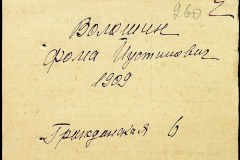 260
Волошин
Фома Иустинович
1909
Гражданская 6